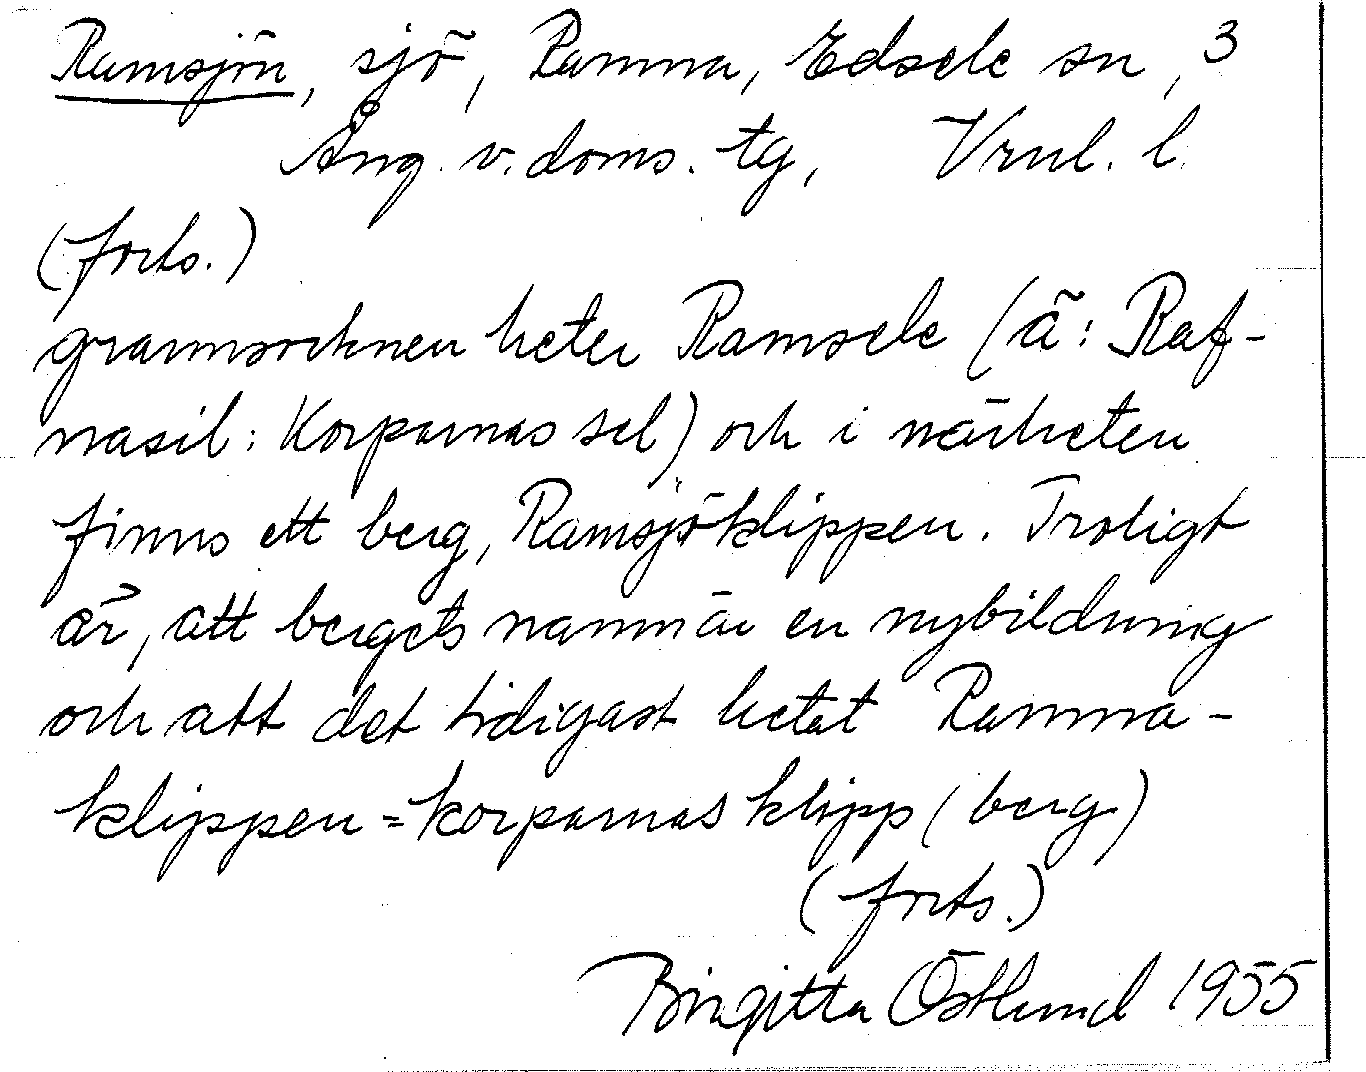 Ramsjön, sjö, Ramna, Edsele sn, 3
Ång. v. doms. tg, Vrnl. l.
(forts.)
grannsocknen heter Ramsele (ä: Raf-
nasil: Korparnas sel) och i närheten
finns ett berg, Ramsjöklippen. Troligt
är, att bergets namn är en nybildning
och att det tidigast hetat Ramna-
klippen = korparnas klipp (berg)
(forts.)
Birgitta Östlund 1955